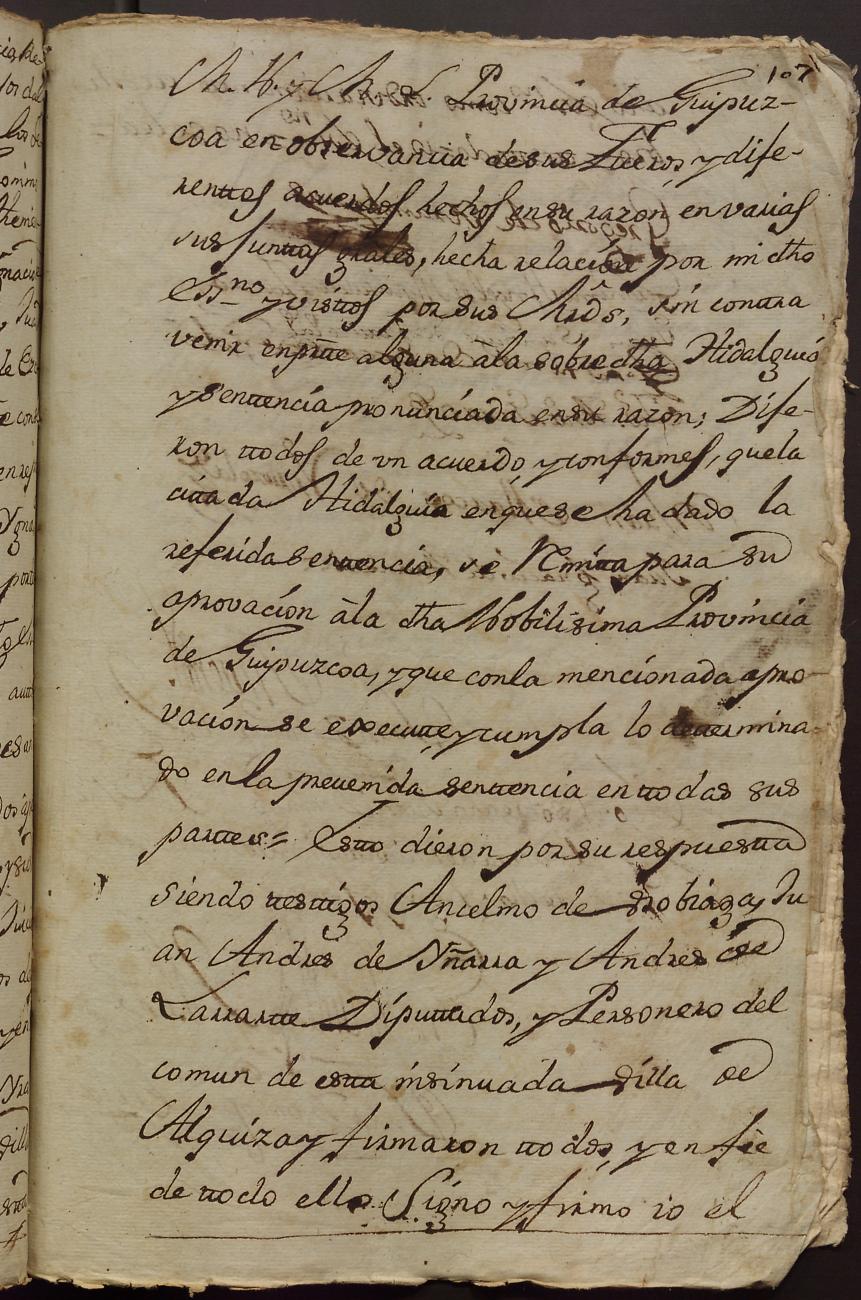 107
M. N. y M. L. Provincia de Guipuz-
coa en observancia de sus Fueros, y dife-
renttes acuerdos hechos en su razon en varias
sus Junttas grales, hecha relación por mi dho
Ess.no y visttos por sus Mrds, sin contra
venir en partte alguna à la sobre dha Hidalguia
y senttencía pronunciada en su razon; Dife-
ron ttodos de vn acuerdo, y conformes, que la
cittada Hidalguía en que se ha dado la
referida senttencia, se Remitta para su
aprovacíon à la dha Nobilisima Provincia
de Guipuzcoa, y que con la mencionada apro-
vacíon se executte, y cumpla lo dettermina-
do en la prevenida senttencia en ttodas sus
parttes= Estto dieron por su respuestta
siendo testtigos Anselmo de Sobiaga, Ju
an Andres de Yñarra y Andres de
Larrartte Díputtados, y Personero del
comun de estta insinuada Villa de
Alquiza y firmaron ttodos, y en fee
de ttodo ello Signo y firmo io el